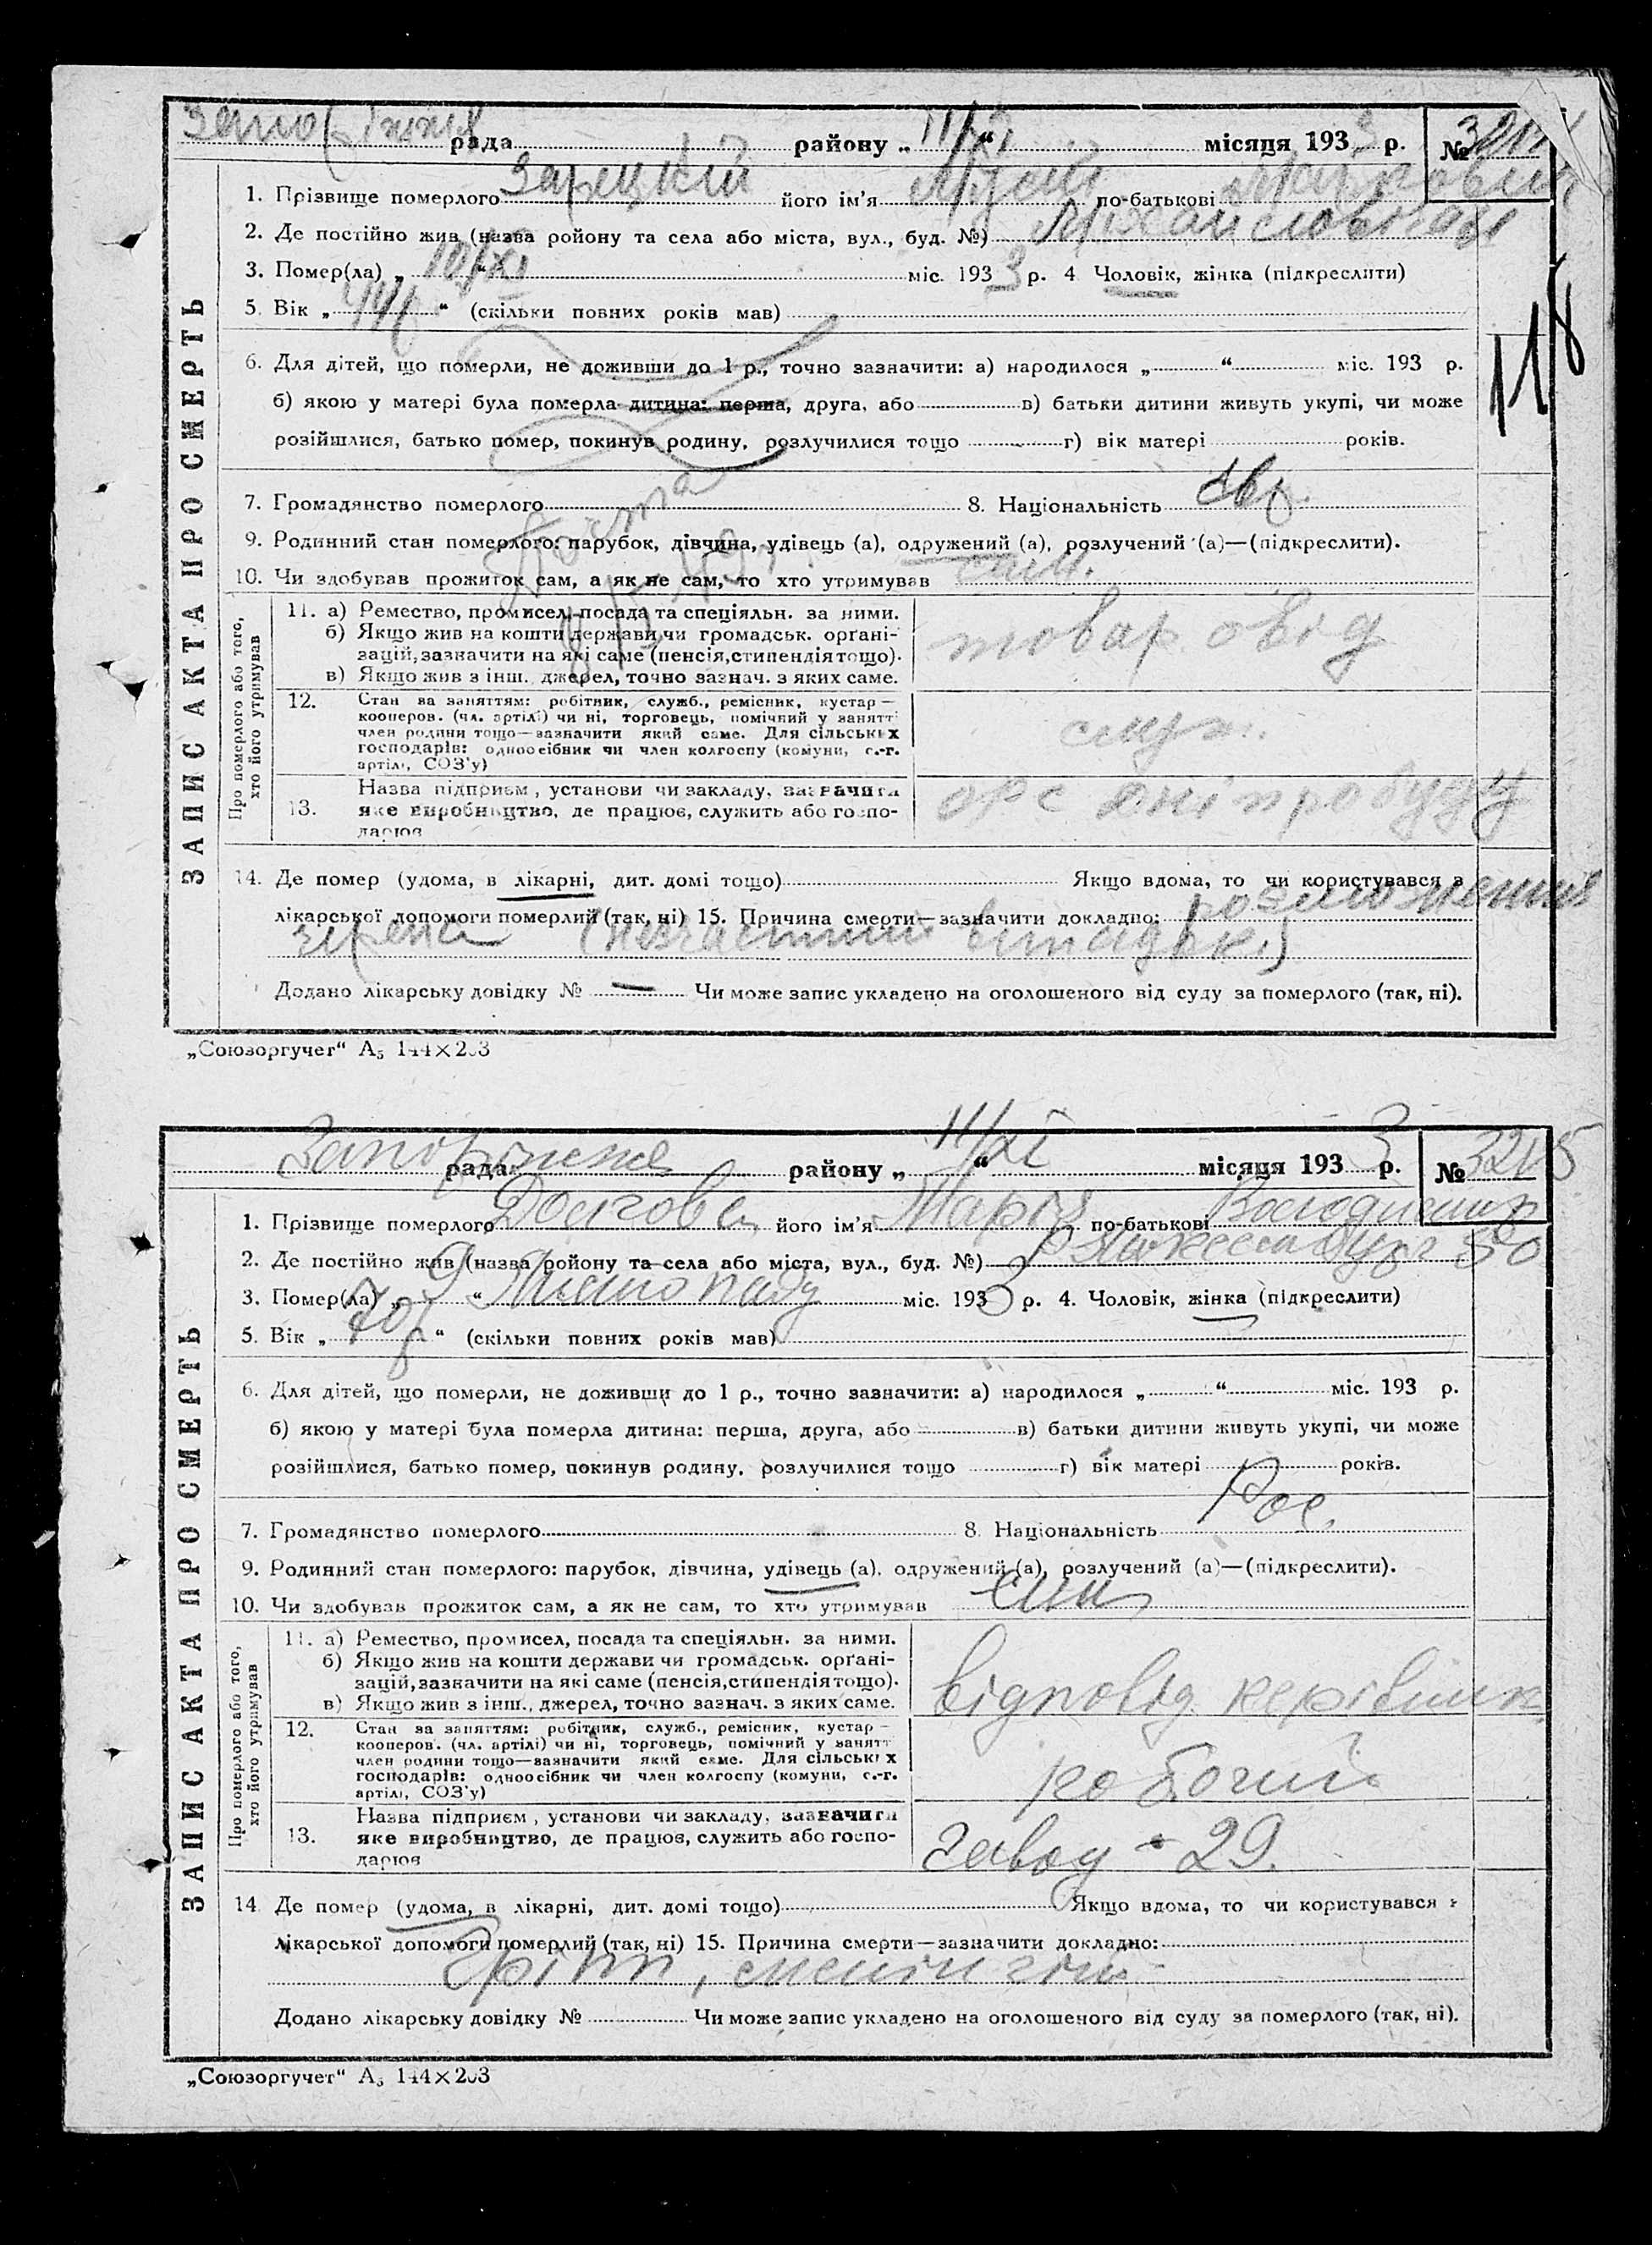 Запоріжжя рада району „ 11/XI “ місяця 1933 р. № 3214
1. Прізвище померлого Зарецкий його ім’я по-батькові Маркович
2. Де постійно жив (назва ройону та села або міста, вул., буд. №)
3. Помер(ла) „ 10/XI “ міс. 1933 р. 4 Чоловік, жінка (підкреслити)
5. Вік „ 44 р “ (скільки повних років мав)
6. Для дітей, що померли, не доживши до 1 р., точно зазначити: а) народилося „ “ міс. 193 р.
б) якою у матері була померла дитина: перша, друга, або в) батьки дитини живуть укупі, чи може
розійшлися, батько помер, покинув родину, розлучилися тощо г) вік матері років.
118
7. Громадянство померлого 8. Національність євр.
9. Родинний стан померлого: парубок, дівчина, удівець (а), одружений (а), розлучений (а)—(підкреслити).
10. Чи здобував прожиток сам, а як не сам, то хто утримував сам.
11. а) Ремество, промисел, посада та спеціяльн. за ними.
б) Якщо жив на кошти держави чи громадськ. орґані-
зацій, зазначити на які саме (пенсія, стипендія тощо).
в) Якщо жив з інш. джерел, точно зазнач. з яких саме.
товаровід
12. Стан за заняттям: робітник, служб., ремісник, кустар—
кооперов. (чл. артілі) чи ні, торговець, помічний у занятті
член родини тощо—зазначити який саме. Для сільських
господарів: одноосібник чи член колгоспу (комуни, с.-г.
артілі, СОЗ’у)
служ.
13. Назва підприєм, установи чи закладу, зазначити
яке виробництво, де працює, служить або госпо-
дарює
орс Дніпробуду
14. Де помер (удома, в лікарні, дит. домі тощо) Якщо вдома, то чи користувався з
лікарської допомоги померлий (так, ні) 15. Причина смерти—зазначити докладно:
(нещасний випадок)
Додано лікарську довідку № — Чи може запис укладено на оголошеного від суду за померлого (так, ні).
ЗАПИС АКТА ПРО СМЕРТЬ
Про померлого або того,
хто його утримував
„Союзоргучет“ А₅ 144×203
Запоріжжя рада району „ 11/XI “ місяця 1933 р. № 3215
1. Прізвище померлого Долгова його ім’я Марія по-батькові Володимир
2. Де постійно жив (назва ройону та села або міста, вул., буд. №) 50
3. Помер(ла) „ 9 “ Листопаду міс. 1933 р. 4. Чоловік, жінка (підкреслити)
5. Вік „ 70 р “ (скільки повних років мав)
6. Для дітей, що померли, не доживши до 1 р., точно зазначити: а) народилося „ “ міс. 193 р.
б) якою у матері була померла дитина: перша, друга, або в) батьки дитини живуть укупі, чи може
розійшлися, батько помер, покинув родину, розлучилися тощо г) вік матері років.
7. Громадянство померлого 8. Національність Рос.
9. Родинний стан померлого: парубок, дівчина, удівець (а), одружений (а), розлучений (а)—(підкреслити).
10. Чи здобував прожиток сам, а як не сам, то хто утримував син
11. а) Ремество, промисел, посада та спеціяльн. за ними.
б) Якщо жив на кошти держави чи громадськ. орґані-
зацій, зазначити на які саме (пенсія, стипендія тощо).
в) Якщо жив з інш., джерел, точно зазнач. з яких саме.
відповід. керівник
12. Стан за заняттям: робітник, служб., ремісник, кустар—
кооперов. (чл. артілі) чи ні, торговець, помічний у занятті
член родини тощо—зазначити який саме. Для сільських
господарів: одноосібник чи член колгоспу (комуни, с.-г.
артілі, СОЗ’у)
робочий
13. Назва підприєм, установи чи закладу, зазначити
яке виробництво, де працює, служить або госпо-
дарює
завод - 29.
14 Де помер (удома, в лікарні, дит. домі тощо) Якщо вдома, то чи користувався з
лікарської допомоги померлий (так, ні) 15. Причина смерти—зазначити докладно:
Грипп, менінгіт
Додано лікарську довідку № Чи може запис укладено на оголошеного від суду за померлого (так, ні).
ЗАПИС АКТА ПРО СМЕРТЬ
Про померлого або того,
хто його утримував
„Союзоргучет“ А₅ 144×203